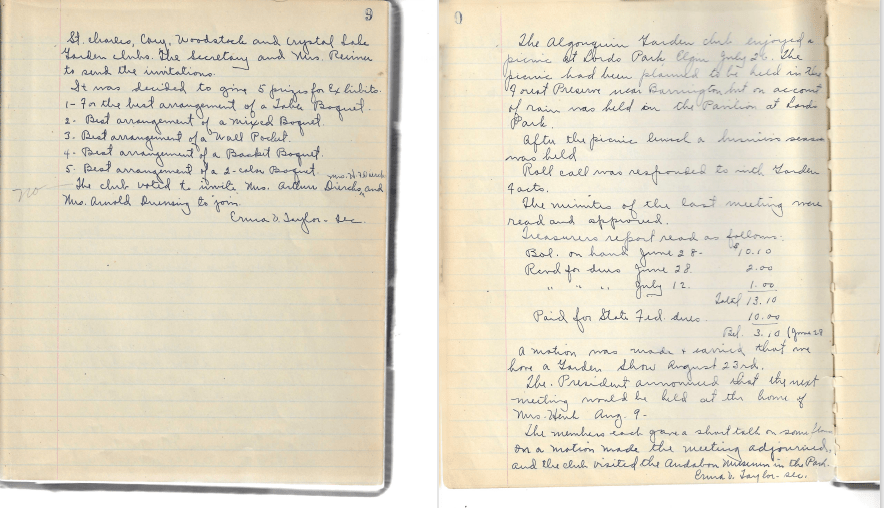 9
St. Charles, Cary, Woodstock and Crystal Lake
Garden clubs. The Secretary and Mrs. Reimer
to send the invitations.
It was decided to give 5 prizes for Exhibits.
1- For the best arrangement of a Table Boquet.
2- Best arrangement of a Mixed Boquet.
3. Best arrangement of a Wall Pocket.
4- Best arrangement of a Basket Boquet.
5- Best arrangement of a 2-color Boquet.
Mrs. H.
no
The club voted to invite Mrs. Arthur Dierchs, and
Mrs. Arnold Duensing to join.
Erma V. Taylor- Sec.
The Algonquin Garden club enjoyed a
picnic at Lords Park, Elgin July 26. The
picnic had been planned to be held in the
Forest Preserve near Barrington but on account
of rain was held in the Pavilion at Lords
Park.
After the picnic lunch a business
was held
Roll call was responded to with Garden
Facts.
The minutes of the last meeting were
read and approved.
Treasurers report read as follows:
Bal. on hand June 28- $10.10
Recd for dues June 28 2.00
" " " July 12. 1.00
Total 13.10
Paid for State Fed. dues. 10.00
Bal. 3.10 (June 28
A motion was made + carried that we
have a Garden Show August 23rd.
The President announced that the next
meeting would be held at the home of
Mrs. Aug. 9-
The members each gave a short talk on some
On a motion made the meeting adjourned,
and the club visited the Audabon Museum in the Park.
Erma V. Taylor- Sec.